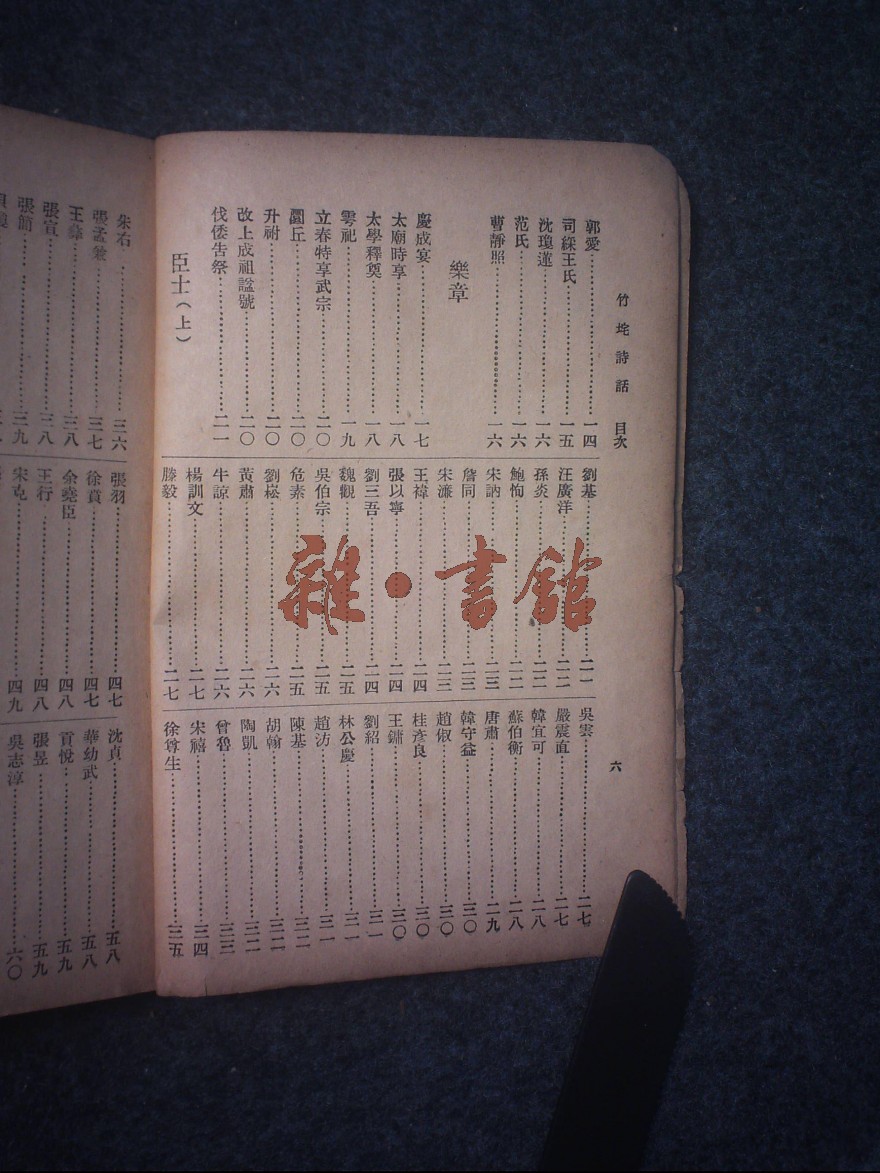 竹垞詩話 目次
六
郭愛 一四
司綵王氏 一五
沈瓊蓮 一六
范氏 一六
曹靜照 一六
樂章
慶成宴 一七
太廟時享 一八
太學釋奠 一八
雩祀 一九
立春特享武宗 二〇
圜丘 二〇
升祔 二〇
改上成祖謚號 二〇
伐倭告祭 二一
臣士(上)
劉基 二一
汪廣洋 二二
孫炎 二二
鮑恂 二二
宋訥 二三
詹同 二三
宋濂 二三
王禕 二四
張以寧 二四
劉三吾 二四
魏觀 二五
吳伯宗 二五
危素 二五
劉崧 二六
黃肅 二六
牛諒 二六
楊訓文 二七
滕毅 二七
吳雲 二七
嚴震直 二七
韓宜可 二八
蘇伯衡 二八
唐肅 二九
韓守益 三〇
趙俶 三〇
桂彥良 三〇
王鏞 三〇
劉紹 三一
林公慶 三一
趙汸 三一
陳基 三二
胡翰 三二
陶凱 三二
曾魯 三三
宋禧 三四
徐尊生 三五
朱右 三六
張孟兼 三七
王彝 三八
張宣 三八
張簡 三九
張羽 四七
徐賁 四七
余堯臣 四八
王行 四八
宋克 四九
沈貞 五八
華幼武 五八
貢悅 五九
張昱 五九
吳志淳 六〇
雜·書館